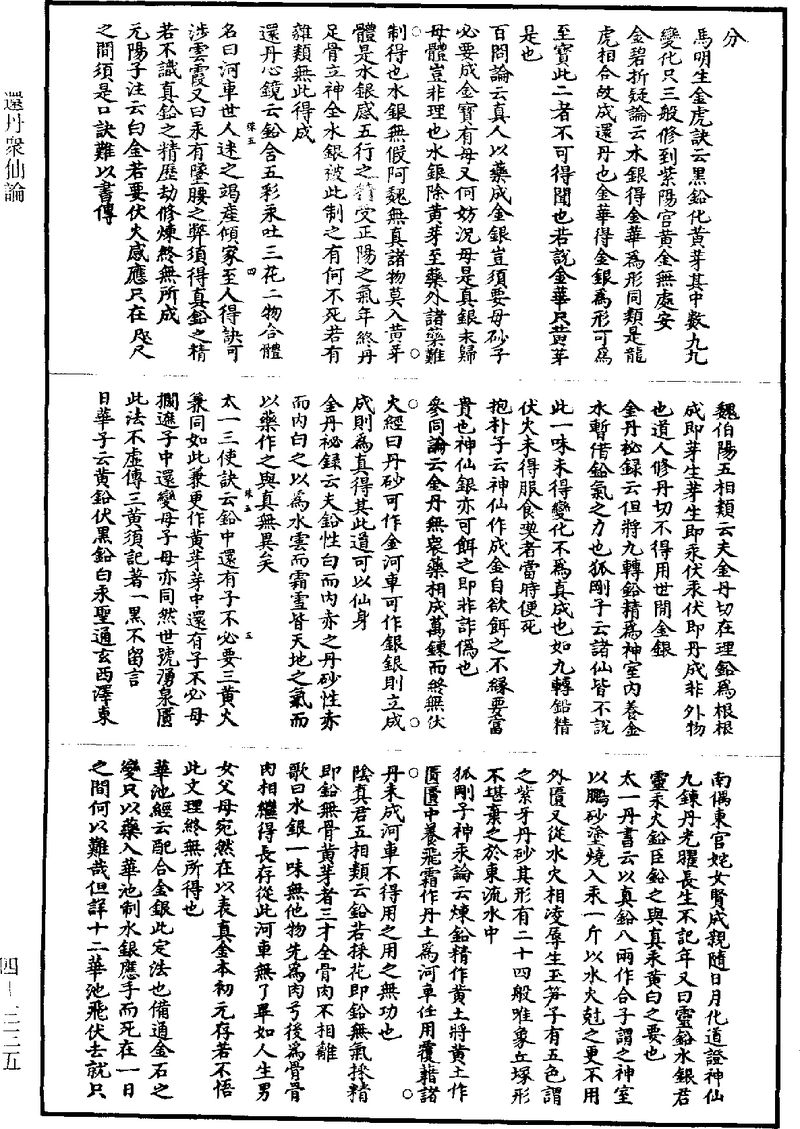 還丹衆仙論
四—三三五
分
馬明生金虎訣云黑鉛化黃芽其中數九九
變化只三般修到紫陽宮黃金無處安
金碧折疑論云水銀得金華爲形同類是龍
虎相合故成還丹也金華得金銀爲形可爲
至寶此二者不可得聞也若說金華只黃芽
是也
百問論云真人以藥成金銀豈須要母砂子
必要成金寶有母又何妨況母是真銀未歸
母體豈非理也水銀除黃芽至藥外諸藥難
制得也水銀無假阿魏無真諸物莫入黃芽
體是水銀感五行之精受正陽之氣年終丹
足骨立神全水銀被此制之有何不死若有
雜類無此得成
還丹心鏡云鉛含五彩汞吐三花二物合體
名曰河車世人迷之竭産傾家至人得訣可
涉雲霞又曰汞有墜腰之弊須得真鉛之精
若不識真鉛之精歷劫修煉終無所成
元陽子注云白金若要伏火感應只在咫尺
之間須是口訣難以書傳
魏伯陽五相類云夫金丹切在理鉛爲根根
成即芽生芽生即汞伏汞伏即丹成非外物
也道人修丹切不得用世間金銀
金丹秘録云但將九轉鉛精爲神室內養金
水暫借鉛氣之力也狐剛子云諸仙皆不說
此一味未得變化不爲真成也如九轉鉛精
伏火未得服食喫者當時便死
抱朴子云神仙作成金自欲餌之不緣要富
貴也神仙銀亦可餌之即非詐僞也
參同論云金丹無衆藥相成萬鍊而終無伏
大經曰丹砂可作金河車可作銀銀則立成
成則爲真得其此道可以仙身
金丹祕録云夫鉛性白而內赤之丹砂性赤
而內白之以爲水雲而霜雪皆天地之氣而
以藥作之與真無異矣
太一三使訣云鉛中還有子不必要三黃火
兼同如此兼更作黃芽芽中還有子不必母
擱遮子中還變母子母亦同然世號湧泉匱
此法不虛傳三黃須記著一黑不留言
日華子云黃鉛伏黑鉛白汞聖通玄西澤東
南偶東官姹女賢成親隨日月化道證神仙
九鍊丹光曜長生不記年又曰靈鉛水銀君
靈汞火鉛臣鉛之與真汞黃白之要也
太一丹書云以真鉛八兩作合子謂之神室
以鵬砂塗燒入汞一斤以水火尅之更不用
外匱又從水火相凌辱生至笋子有五色謂
之紫芽丹砂其形有二十四般唯象丘塚形
不堪棄之於東流水中
狐剛子神汞論云煉鉛精作黃土將黃土作
匱匱中養飛霜作丹土爲河車任用覆藉諸
丹未成河車不得用之用之無功也
陰真君五相類云鉛若採花即鉛無氣採精
即鉛無骨黃芽者三才全骨肉不相離
歌曰水銀一味無他物先爲肉兮後爲骨骨
肉相繼得長存從此河車無了畢如人生男
女父母宛然在以表真金本初元存若不悟
此文理終無所得也
華池經云配合金銀此定法也備通金石之
變只以藥入華池制水銀應手而死在一日
之間何以難哉但詳十二華池飛伏去就只